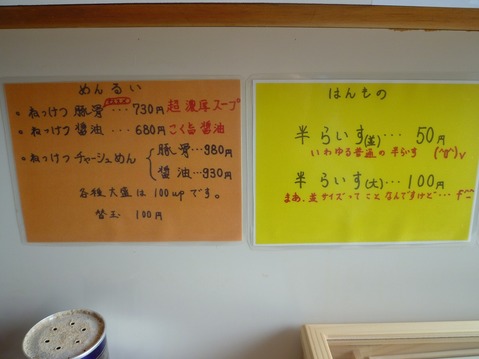 めんるい
・ねっけつ 豚骨 ・・・ 730円 超濃厚スープ
・ねっけつ 醤油 ・・・ 680円 こく旨醤油
・ねっけつ チャーシュめん { 豚骨 ・・・980円
醤油 ・・・930円
各種大盛は100upです。
替玉 100円
はんもの
半らいす(並)・・・ 50円
いわゆる普通の半らいす (^o^)v
半らいす(大)・・・ 100円
まあ、並サイズってことなんですけど・・・